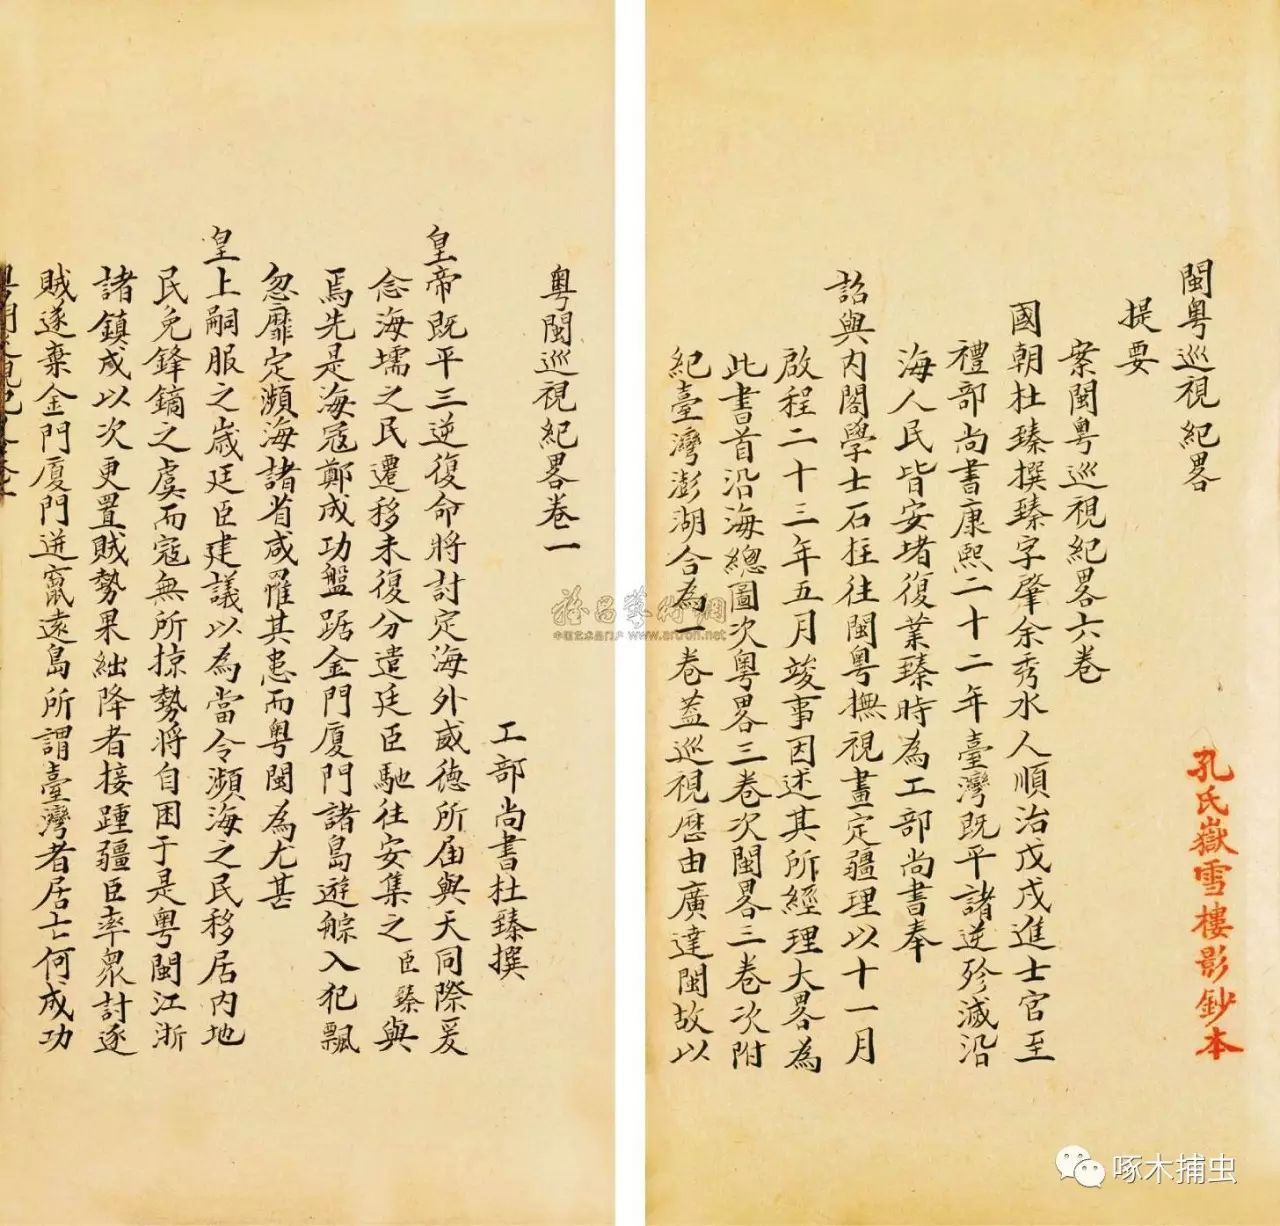 閩粤巡視紀畧
提要
案閩粤巡視紀畧六卷
國朝杜臻撰臻字肇余秀水人順治戊戌進士官至
禮部尚書康熙二十二年臺灣既平諸逆殄滅沿
海人民皆安堵復業臻時為工部尚書奉
詔與内閣學士石柱往閩粤撫視畫定疆理以十一月
啟程二十三年五月竣事因述其所經理大畧為
此書首沿海總圖次粤畧三卷次閩畧三卷次附
紀臺灣澎湖合為一卷蓋巡視歴由廣達閩故以
孔氏嶽雪樓影鈔本
粤閩巡視紀畧卷一
工部尚書杜臻撰
皇帝既平三逆復命將討定海外威德所届與天同際爰
念海壖之民遷移未復分遣廷臣馳往安集之臣臻與
焉先是海寇鄭成功盤踞金門厦門諸島遊䑸入犯飄
忽靡定瀕海諸省咸罹其患而粤閩為尤甚
皇上嗣服之歲廷臣建議以為當令瀕海之民移居内地
民免鋒鏑之虞而寇無所掠勢將自困于是粤閩江浙
諸鎮戍以次更置賊勢果絀降者接踵疆臣率衆討逐
賊遂棄金門厦門迸竄遠島所謂臺灣者居亡何成功
雅昌藝術網
中国艺术品门户 www.artron.net
啄木捕虫